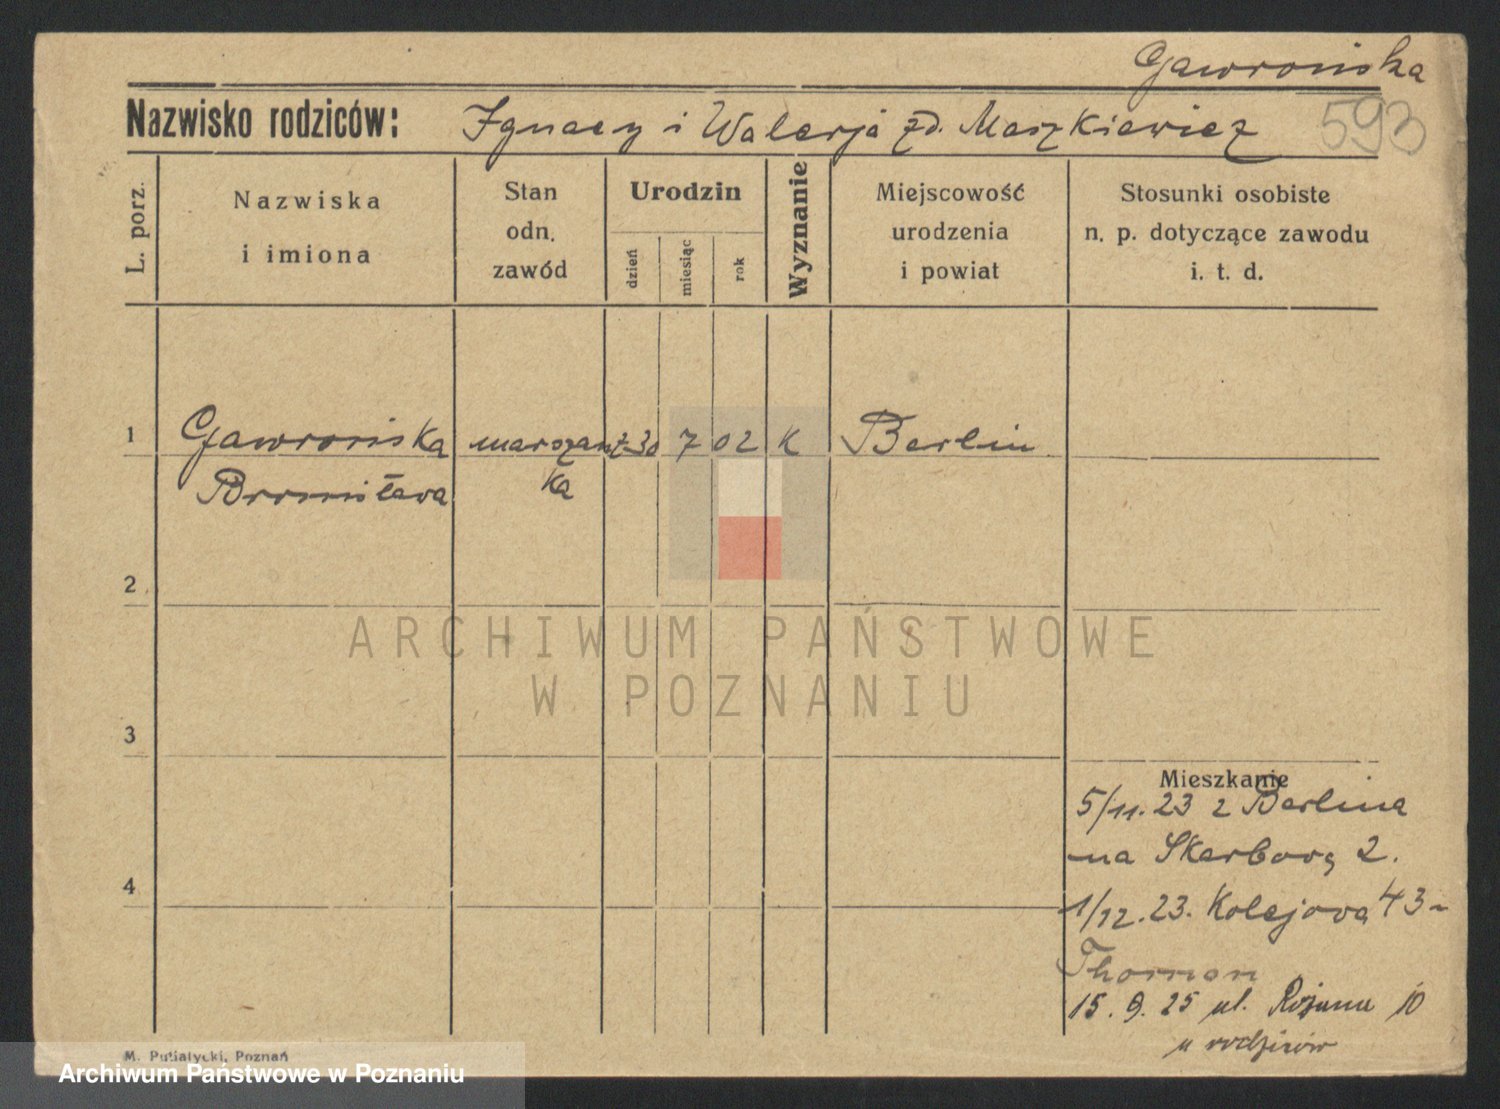 Gawrońska
Nazwisko rodziców: Ignacy i Walerja zd. Maszkiewicz 593
L. porz.
Nazwiska
i imiona
Stan
odn.
zawód
Urodzin
dzień
miesiąc
rok
Wyznanie
Miejscowość
urodzenia
i powiat
Stosunki osobiste
n. p. dotyczące zawodu
i. t. d.
1 Gawrońska 30 7 02 K Berlin
Bronisława
2
ARCHIWUM PAŃSTWOWE
W POZNANIU
3
Mieszkanie
5/11.23 z Berlina
na Skarbową 2.
4
1/12.23. Kolejowa 43-
15.9.25 ul. Różana 10
u rodziców
M. Putiatycki, Poznań
Archiwum Państwowe w Poznaniu